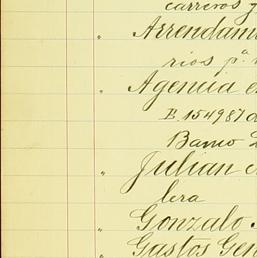 carreros y
" Arrendam
rios p.ª
" Agencia e
B. 154987 d
Banco
" Julian
lera
" Gonzalo
" Gastos Gen